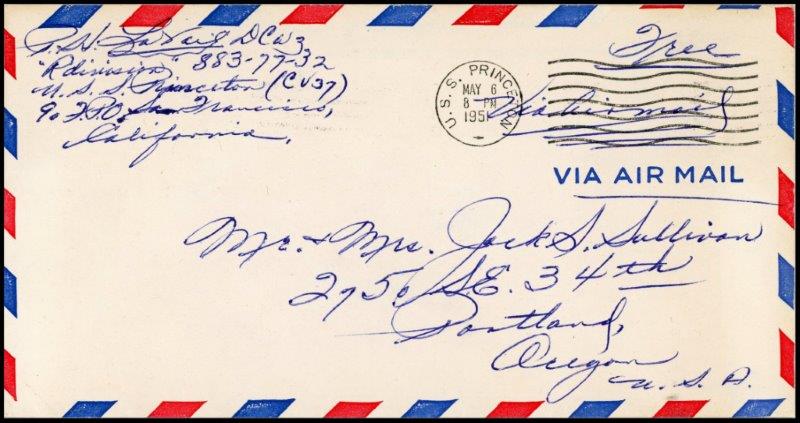 DCW3
"R division" 883-77-32
U.S.S. Princeton (CV37)
℅ F.P.O. San Francisco,
California.
U.S.S. PRINCETON
MAY 6
8 - PM
1951
Free
Via air mail
VIA AIR MAIL
Mr. & Mrs. Jack S. Sullivan
2750 S.E. 34th
Portland,
Oregon
U.S.A.